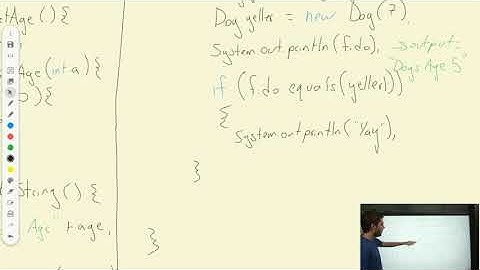 etAge() {
Age(int a) {
0) {
String() {
Age" + age,
Dog yeller = new Dog(7),
System.out.println(fido),
output -
"Dogs Age 5"
if (fido equals(yeller))
{
System out println("Yay"),
}
}